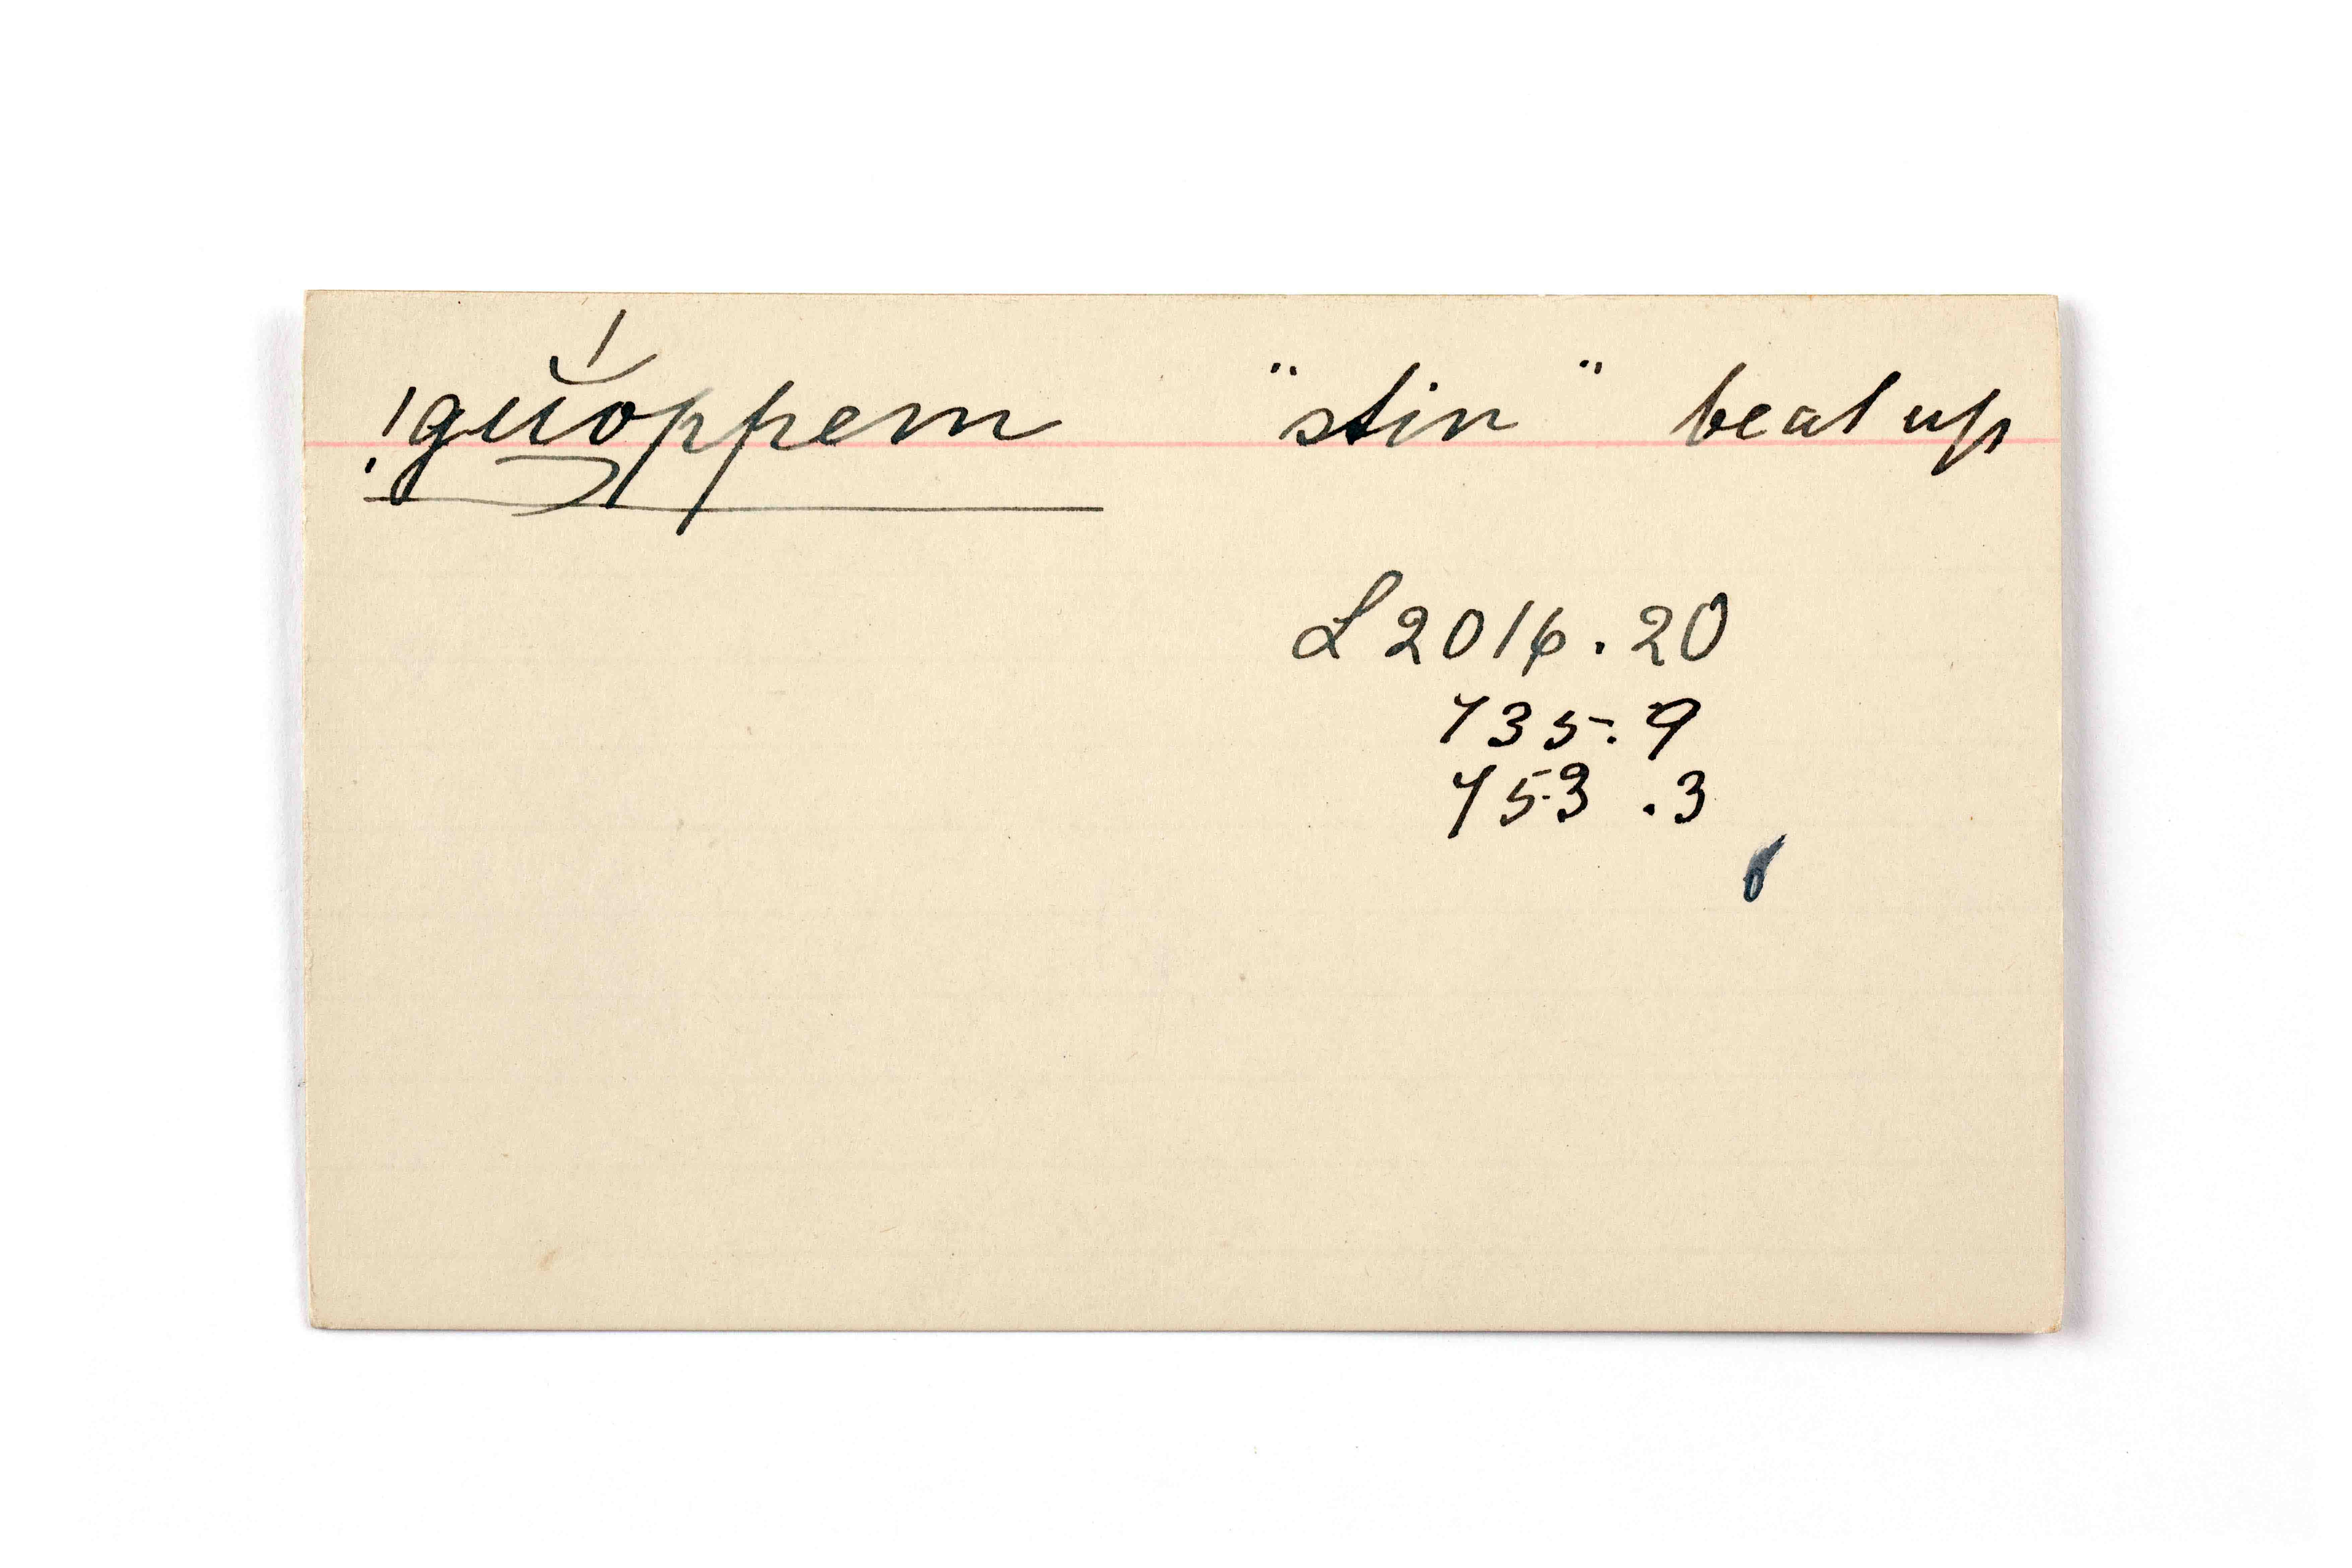 !gŭ́oppem "stir" beat up
L 2016.20
735.9
753.3